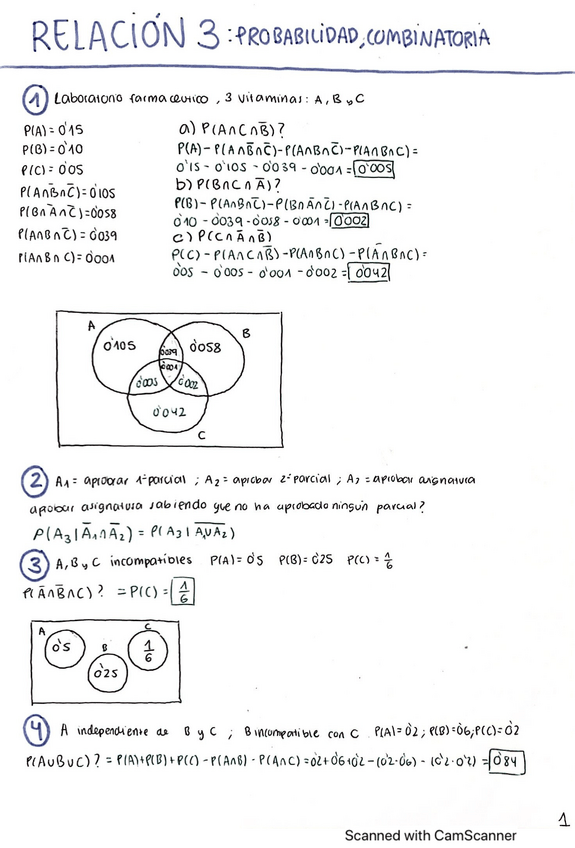 RELACIÓN 3: PROBABILIDAD, COMBINATORIA
1 Laboratorio farmaceutico, 3 vitaminas: A, B y C
P(A) = 0'15
P(B) = 0'10
P(C) = 0'05
P(A∩B̄∩C̄) = 0'105
P(B∩Ā∩C̄) = 0'058
P(A∩B∩C̄) = 0'039
P(A∩B∩C) = 0'001
a) P(A∩C∩B̄)?
P(A) - P(A∩B̄∩C̄) - P(A∩B∩C̄) - P(A∩B∩C) =
0'15 - 0'105 - 0'039 - 0'001 = 0'005
b) P(B∩C∩Ā)?
P(B) - P(A∩B∩C̄) - P(B∩Ā∩C̄) - P(A∩B∩C) =
0'10 - 0'039 - 0'058 - 0'001 = 0'002
c) P(C∩Ā∩B̄)
P(C) - P(A∩C∩B̄) - P(A∩B∩C) - P(Ā∩B∩C) =
0'05 - 0'005 - 0'001 - 0'002 = 0'042
A
B
0'105
0'039
0'058
0'001
0'005
0'002
0'042
C
2 A₁ = aprobar 1º parcial ; A₂ = aprobar 2º parcial ; A₃ = aprobar asignatura
aprobar asignatura sabiendo que no ha aprobado ningún parcial?
P(A₃ | Ā₁∩Ā₂) = P(A₃ | A̅₁̅∪̅A̅₂̅)
3 A, B y C incompatibles P(A) = 0'5 P(B) = 0'25 P(C) = 1/6
P(Ā∩B̄∩C)? = P(C) = 1/6
A
B
C
0'5
0'25
1/6
4 A independiente de B y C ; B incompatible con C P(A) = 0'2 ; P(B) = 0'6 ; P(C) = 0'2
P(A∪B∪C)? = P(A)+P(B)+P(C) - P(A∩B) - P(A∩C) = 0'2+0'6+0'2 - (0'2·0'6) - (0'2·0'2) = 0'84
1
Scanned with CamScanner